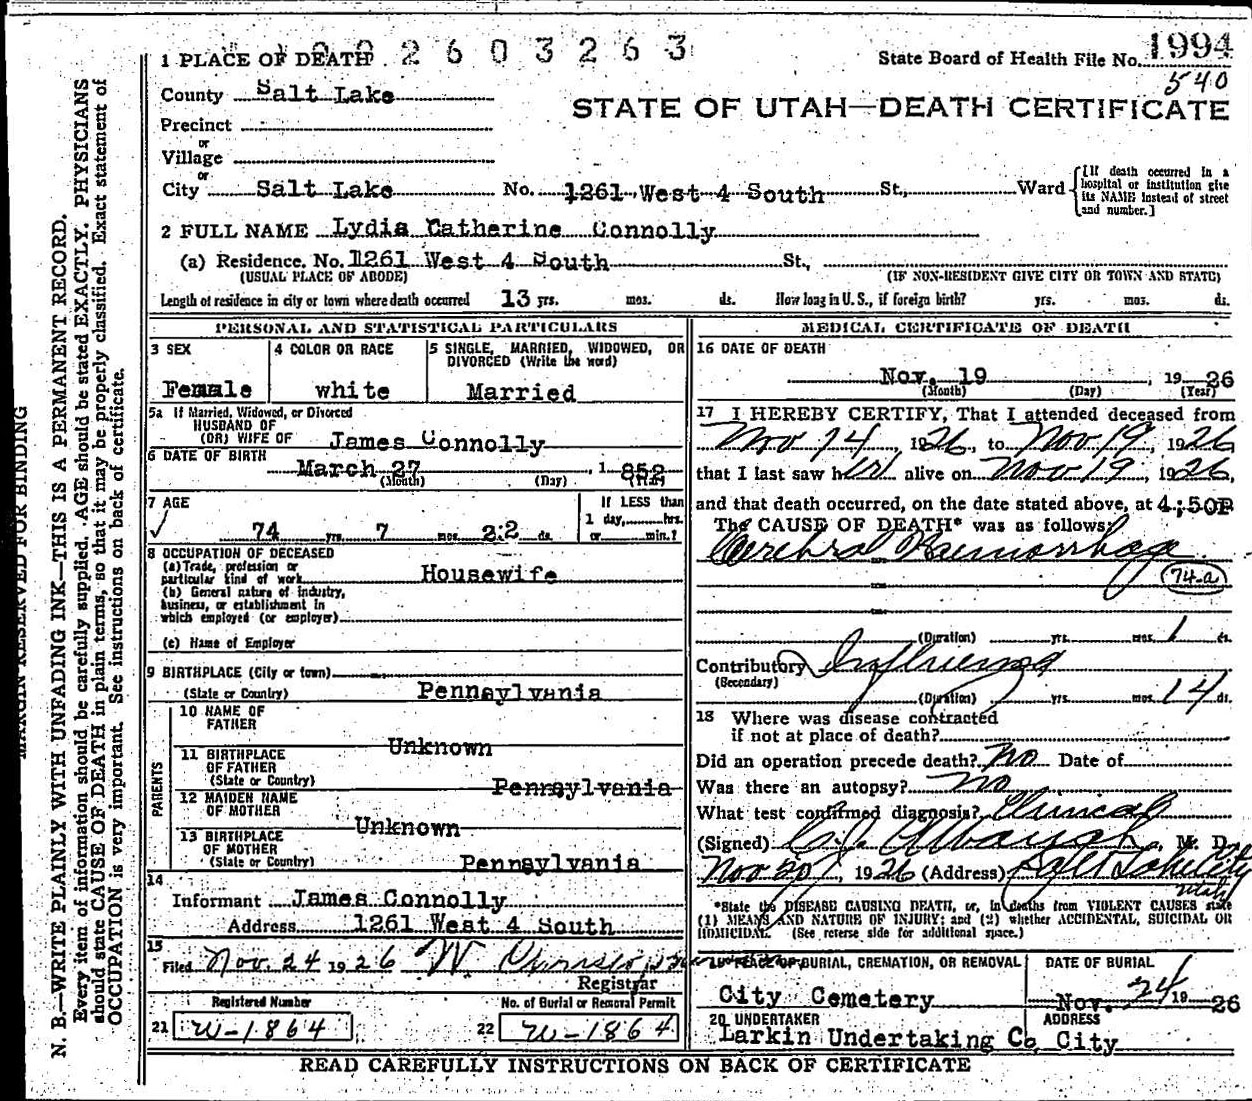 1 PLACE OF DEATH 2 6 0 3 2 6 3
State Board of Health File No. 1994
540
County Salt Lake
STATE OF UTAH—DEATH CERTIFICATE
Precinct
or
Village
or
City Salt Lake No. 1261 West 4 South St., Ward
[If death occurred in a hospital or institution give its NAME instead of street and number.]
2 FULL NAME Lydia Catherine Connolly
(a) Residence. No. 1261 West 4 South St.,
(USUAL PLACE OF ABODE) (IF NON-RESIDENT GIVE CITY OR TOWN AND STATE)
Length of residence in city or town where death occurred 13 yrs. mos. ds. How long in U. S., if foreign birth? yrs. mos. ds.
PERSONAL AND STATISTICAL PARTICULARS
3 SEX
Female
4 COLOR OR RACE
white
5 SINGLE, MARRIED, WIDOWED, OR
DIVORCED (Write the word)
Married
5a If Married, Widowed, or Divorced
HUSBAND OF
(OR) WIFE OF James Connolly
6 DATE OF BIRTH
March 27, 1852
(Month) (Day) (Year)
7 AGE
74 yrs. 7 mos. 22 ds.
If LESS than
1 day, hrs.
or min.?
8 OCCUPATION OF DECEASED
(a) Trade, profession or
particular kind of work Housewife
(b) General nature of industry,
business, or establishment in
which employed (or employer)
(c) Name of Employer
9 BIRTHPLACE (City or town)
(State or Country) Pennsylvania
PARENTS
10 NAME OF
FATHER
Unknown
11 BIRTHPLACE
OF FATHER
(State or Country) Pennsylvania
12 MAIDEN NAME
OF MOTHER
Unknown
13 BIRTHPLACE
OF MOTHER
(State or Country) Pennsylvania
14
Informant James Connolly
Address 1261 West 4 South
15
Filed Nov. 24 1926 W.
Registrar
Registered Number
21 W-1864
No. of Burial or Removal Permit
22 W-1864
MEDICAL CERTIFICATE OF DEATH
16 DATE OF DEATH
Nov. 19, 1926
(Month) (Day) (Year)
17 I HEREBY CERTIFY, That I attended deceased from
Nov 14, 1926, to Nov 19, 1926,
that I last saw her alive on Nov 19, 1926,
and that death occurred, on the date stated above, at 4:50P
The CAUSE OF DEATH* was as follows:
Cerebral Haemorrhage
74-a
(Duration) yrs. mos. 1 ds.
Contributory Influenza
(Secondary)
(Duration) yrs. mos. 14 ds.
18 Where was disease contracted
if not at place of death?
Did an operation precede death? No Date of
Was there an autopsy? no
What test confirmed diagnosis? Clinical
(Signed) M. D.
Nov 20, 1926 (Address) Salt Lake City
Utah
*State the DISEASE CAUSING DEATH, or, in deaths from VIOLENT CAUSES state
(1) MEANS AND NATURE OF INJURY; and (2) whether ACCIDENTAL, SUICIDAL OR
HOMICIDAL. (See reverse side for additional space.)
19 PLACE OF BURIAL, CREMATION, OR REMOVAL
City Cemetery
DATE OF BURIAL
Nov. 24 1926
20 UNDERTAKER
Larkin Undertaking Co
ADDRESS
City
READ CAREFULLY INSTRUCTIONS ON BACK OF CERTIFICATE
MARGIN RESERVED FOR BINDING
N. B.—WRITE PLAINLY WITH UNFADING INK—THIS IS A PERMANENT RECORD.
Every item of information should be carefully supplied. AGE should be stated EXACTLY. PHYSICIANS
should state CAUSE OF DEATH in plain terms, so that it may be properly classified. Exact statement of
OCCUPATION is very important. See instructions on back of certificate.